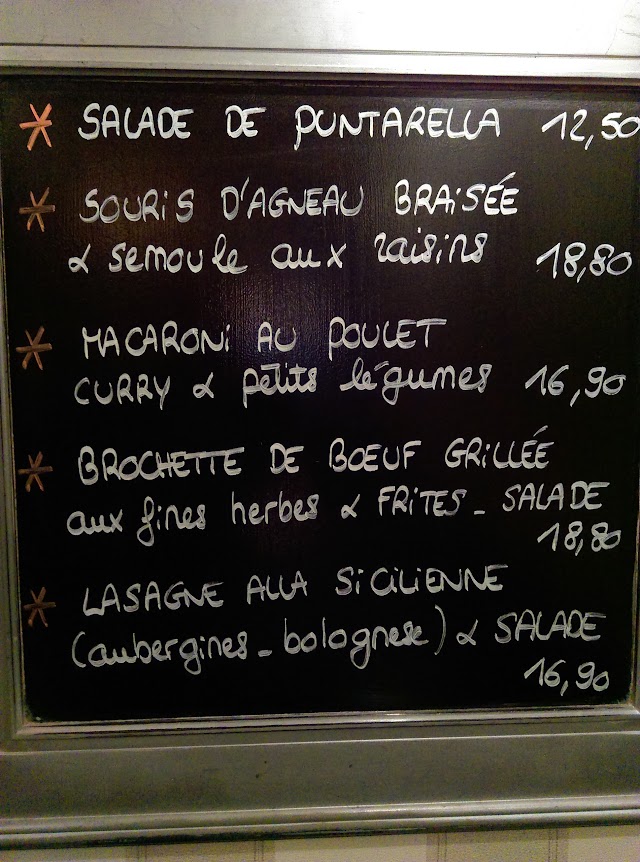 * SALADE DE PUNTARELLA 12,50
* SOURIS D'AGNEAU BRAISÉE
& semoule aux raisins 18,80
* MACARONI AU POULET
CURRY & petits légumes 16,90
* BROCHETTE DE BŒUF GRILLÉE
aux fines herbes & FRITES - SALADE
18,80
* LASAGNE ALLA SICILIENNE
(aubergines - bolognese) & SALADE
16,90